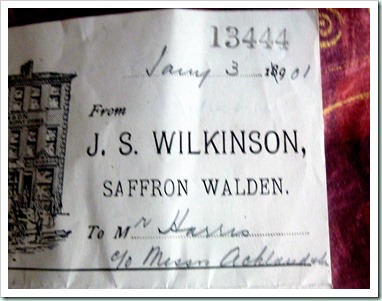 13444
Jany 3 1901
From
J. S. WILKINSON,
SAFFRON WALDEN.
To Mr Harris
c/o Messrs